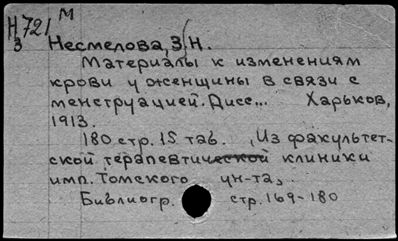 Н721 М
3
Несмелова, З. Н.
Материалы к изменениям
крови у женщины в связи с
менструацией. Дисс... Харьков,
1913.
180 стр. 15 таб. „Из факультет-
ской терапевтической клиники
имп. Томского ун-та„
Библиогр. стр. 169-180